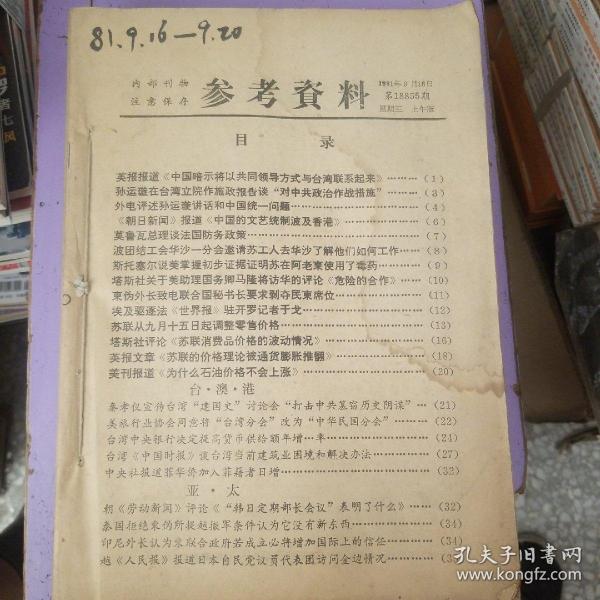 81.9.16—9.20
内部刊物
注意保存
参考資料
1981年9月16日
第18855期
星期三 上午版
目 录
英报报道《中国暗示将以共同领导方式与台湾联系起来》………（1）
孙运璇在台湾立院作施政报告谈“对中共政治作战措施”………（3）
外电评述孙运璇讲话和中国统一问题………（4）
《朝日新闻》报道《中国的文艺统制波及香港》………（6）
莫鲁瓦总理谈法国防务政策………（7）
波团结工会华沙一分会邀请苏工人去华沙了解他们如何工作………（8）
斯托塞尔说美掌握初步证据证明苏在阿老柬使用了毒药………（9）
塔斯社关于美助理国务卿马隆将访华的评论《危险的合作》………（10）
柬伪外长致电联合国秘书长要求剥夺民柬席位………（11）
埃及驱逐法《世界报》驻开罗记者于戈………（12）
苏联从九月十五日起调整零售价格………（13）
塔斯社评论《苏联消费品价格的波动情况》………（16）
英报文章《苏联的价格理论被通货膨胀推翻》………（18）
美刊报道《为什么石油价格不会上涨》………（20）
台·澳·港
秦孝仪宣传台湾“建国史”讨论会“打击中共篡窃历史阴谋”…（21）
美旅行业协会同意将“台湾分会”改为“中华民国分会”………（22）
台湾中央银行决定提高货币供给额年增…率………（24）
台湾《中国时报》谈台湾当前建筑业困境和解决办法………（27）
中央社报道菲华侨加入菲籍者日增………（32）
亚·太
朝《劳动新闻》评论《“韩日定期部长会议”表明了什么》………（32）
泰国拒绝柬的所提越撤军条件认为它没有新东西………（34）
印尼外长认为柬联合政府若成立必将增加国际上的信任………（34）
越《人民报》报道日本自民党议员代表团访问金边情况………（3
孔夫子旧书网
www.kongfz.com